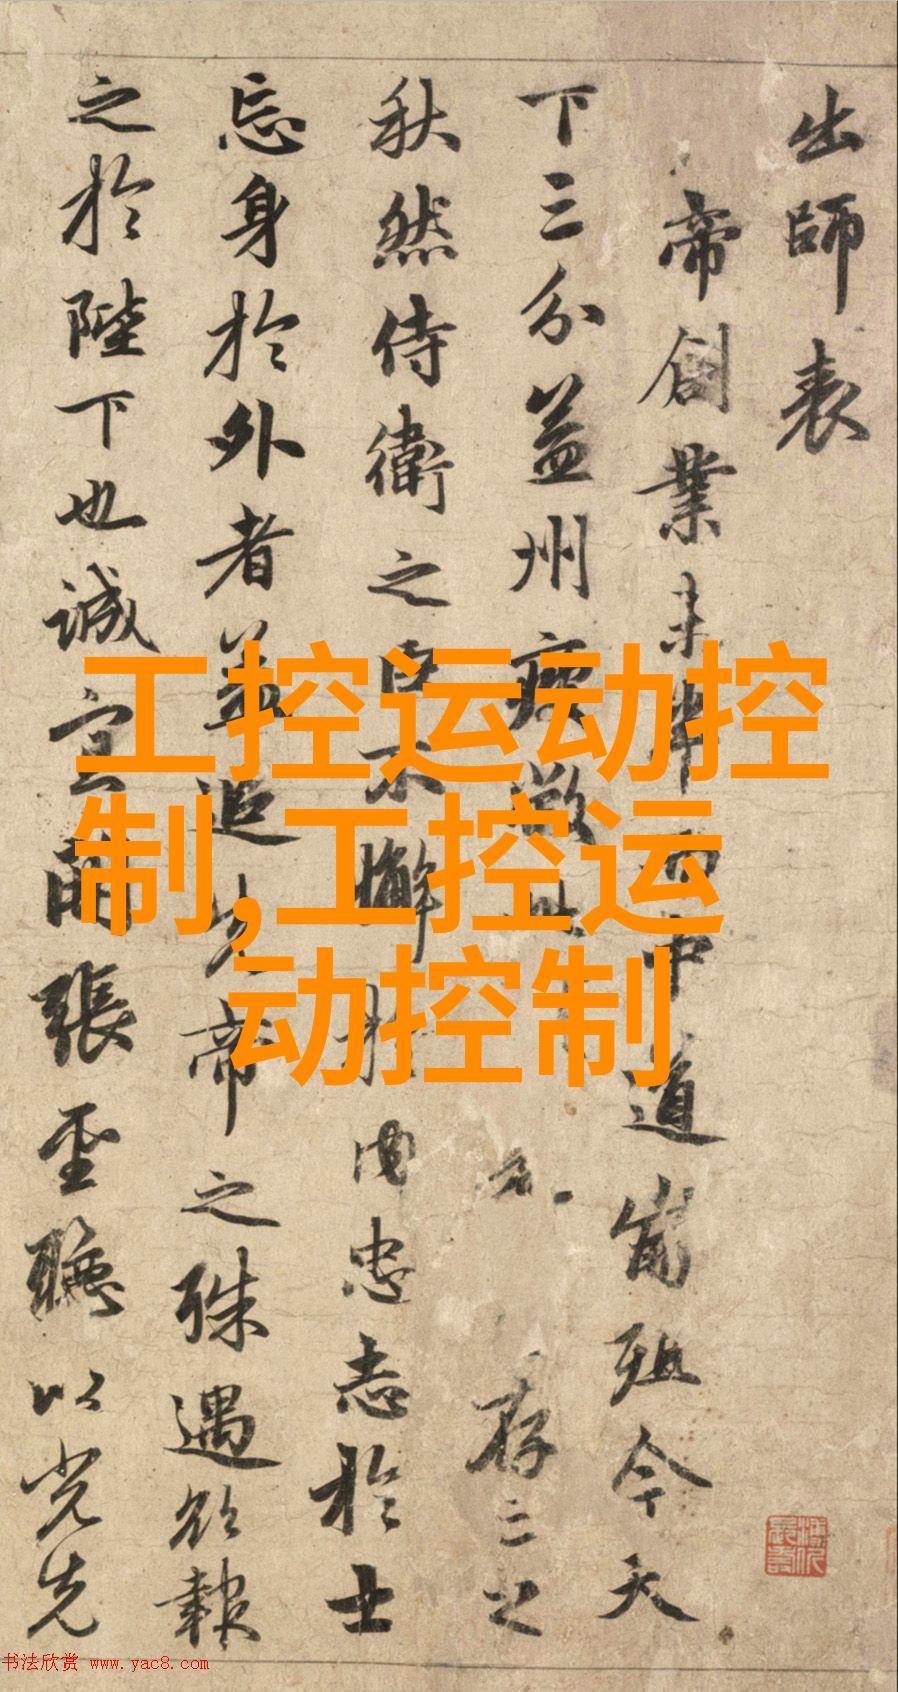 出師表
帝創業未半而中道崩殂今天
下三分益州疲敝此
存亡之
秋然侍衛之臣不懈於内忠志於士
忘身於外者蓋追先帝之殊遇欲報
之於陛下也誠宜開張聖聽以光先
工控运动控
制,工控运
动控制
书法欣赏 www.yac8.com